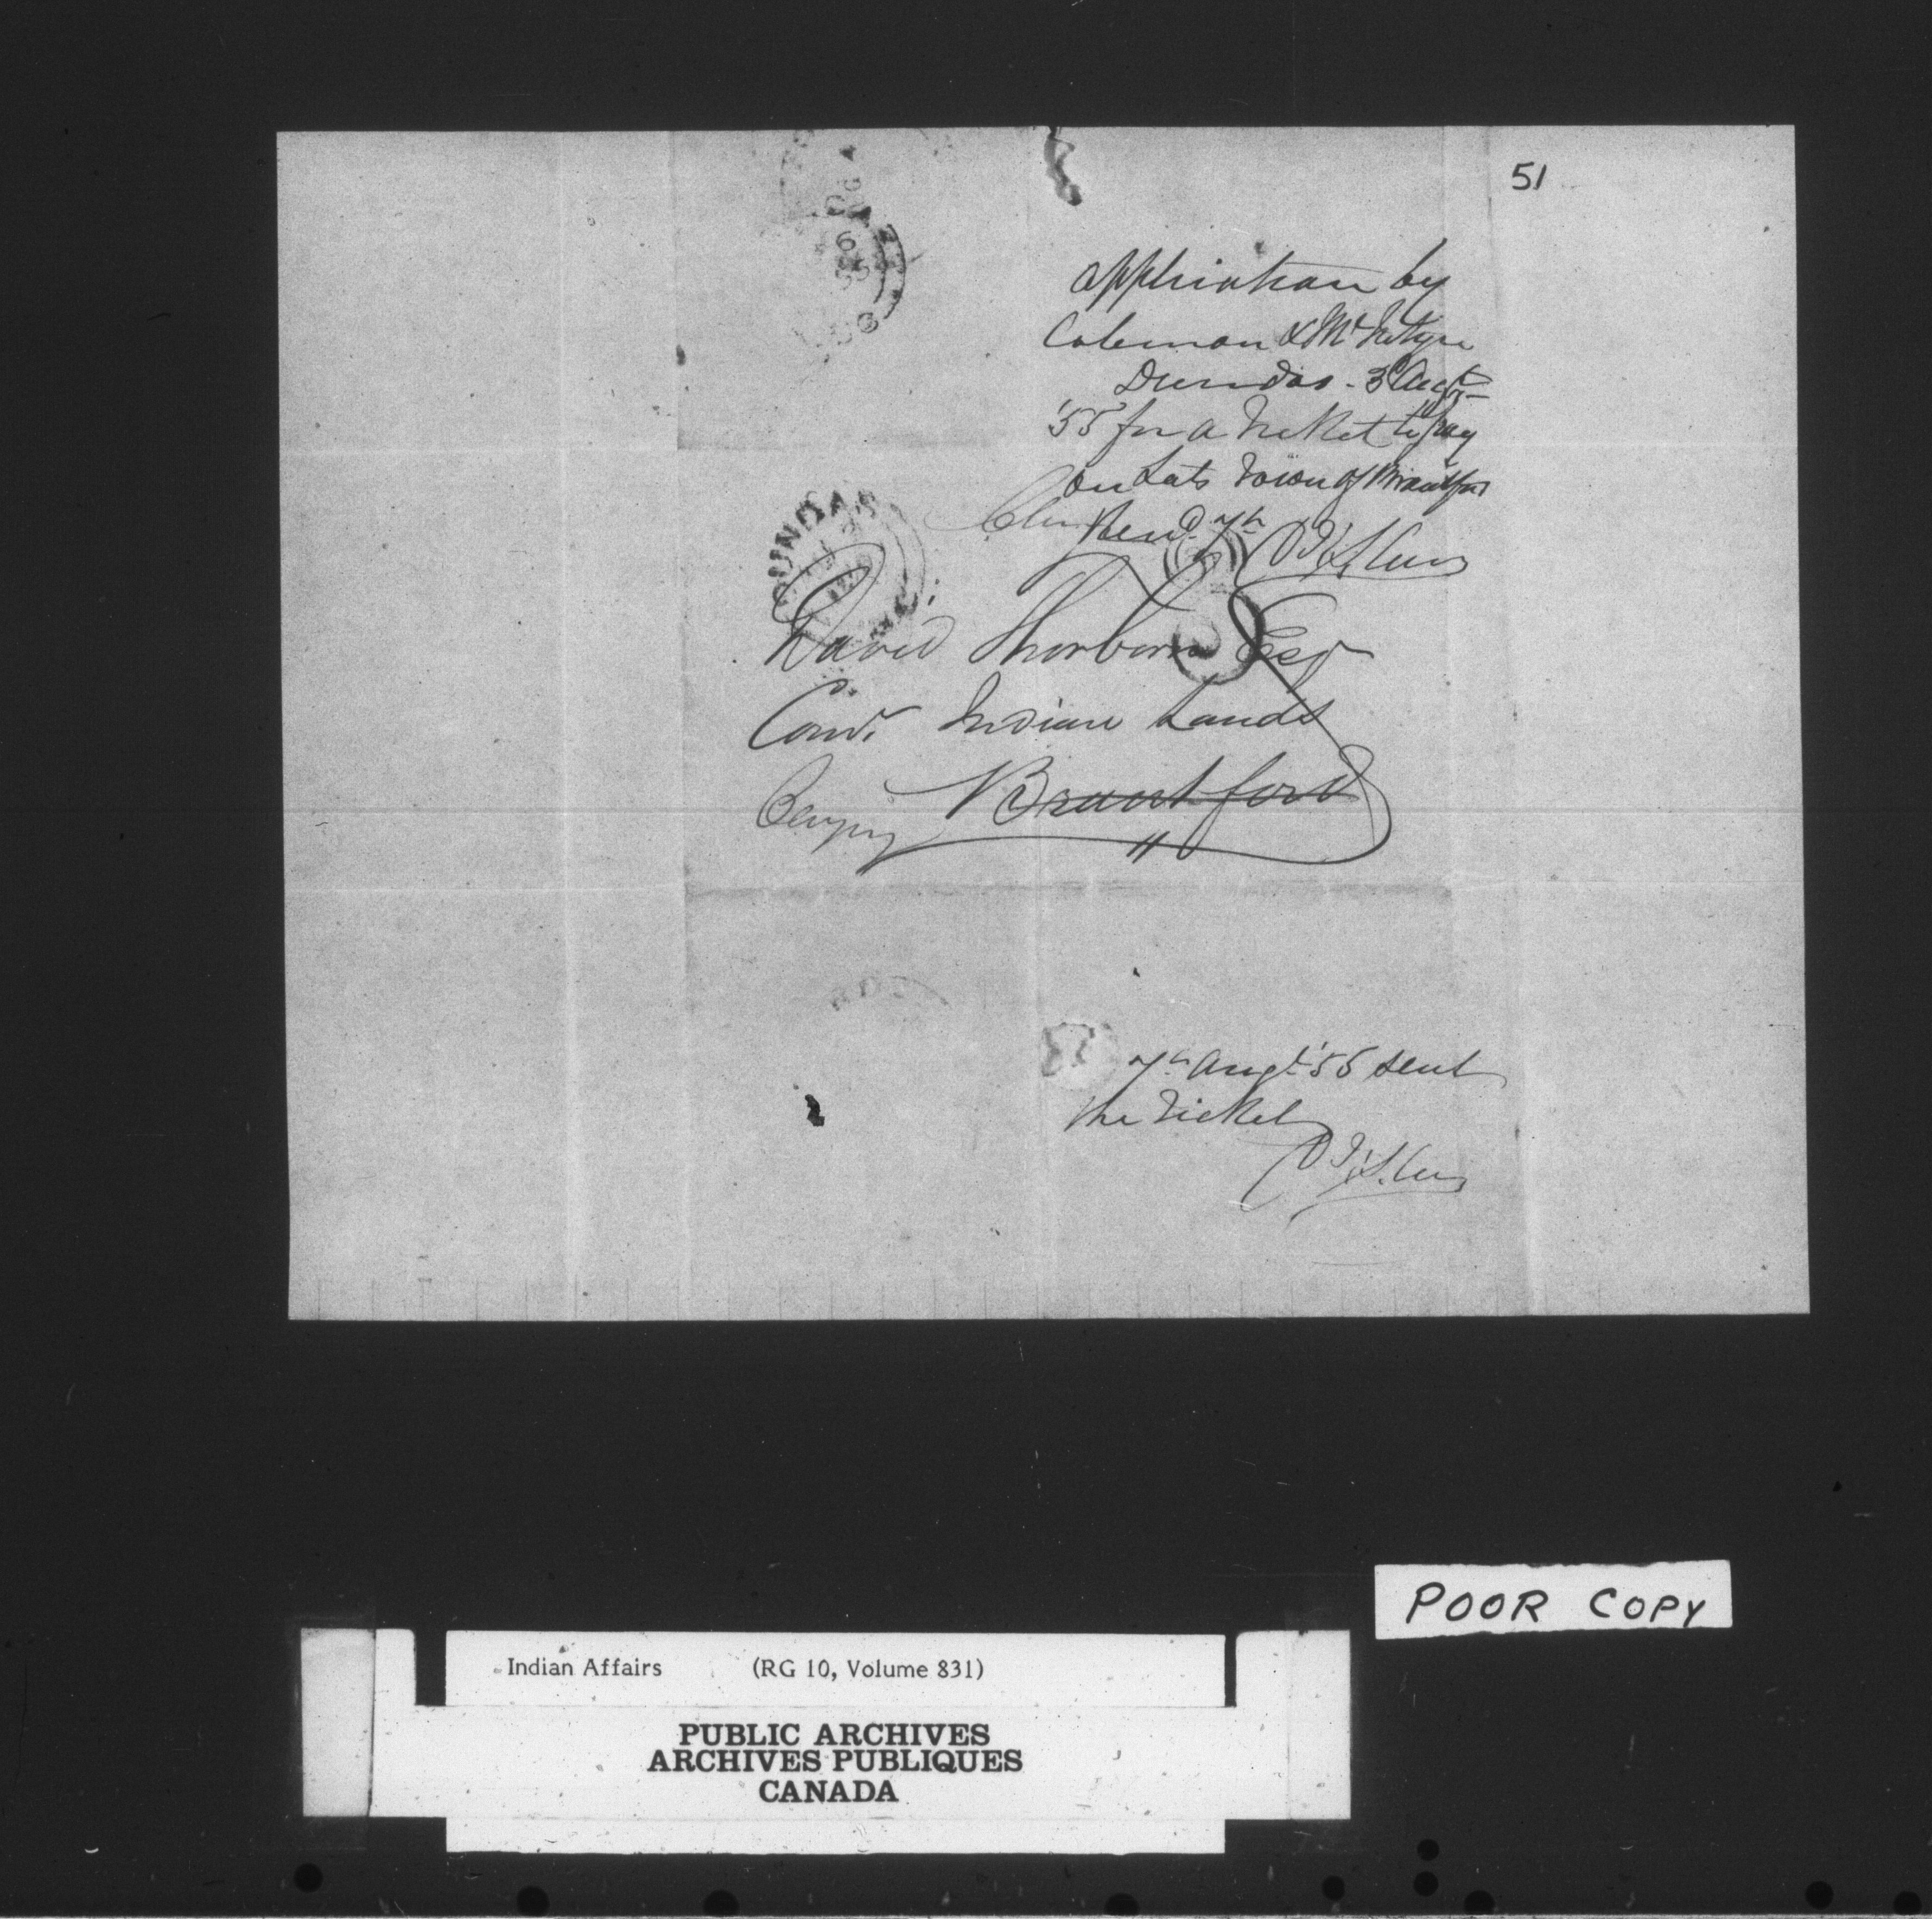 51
application by
Coleman & McIntyre
Dundas - 3d Augt
'55 for a Ticket to pay
on Lots Town of Brantford
Recd 7th
DUNDAS
David Thorburn Esqr
Comr. Indian Lands
Brantford
7th Augt '55 sent
the Ticket
POOR COPY
Indian Affairs (RG 10, Volume 831)
PUBLIC ARCHIVES
ARCHIVES PUBLIQUES
CANADA